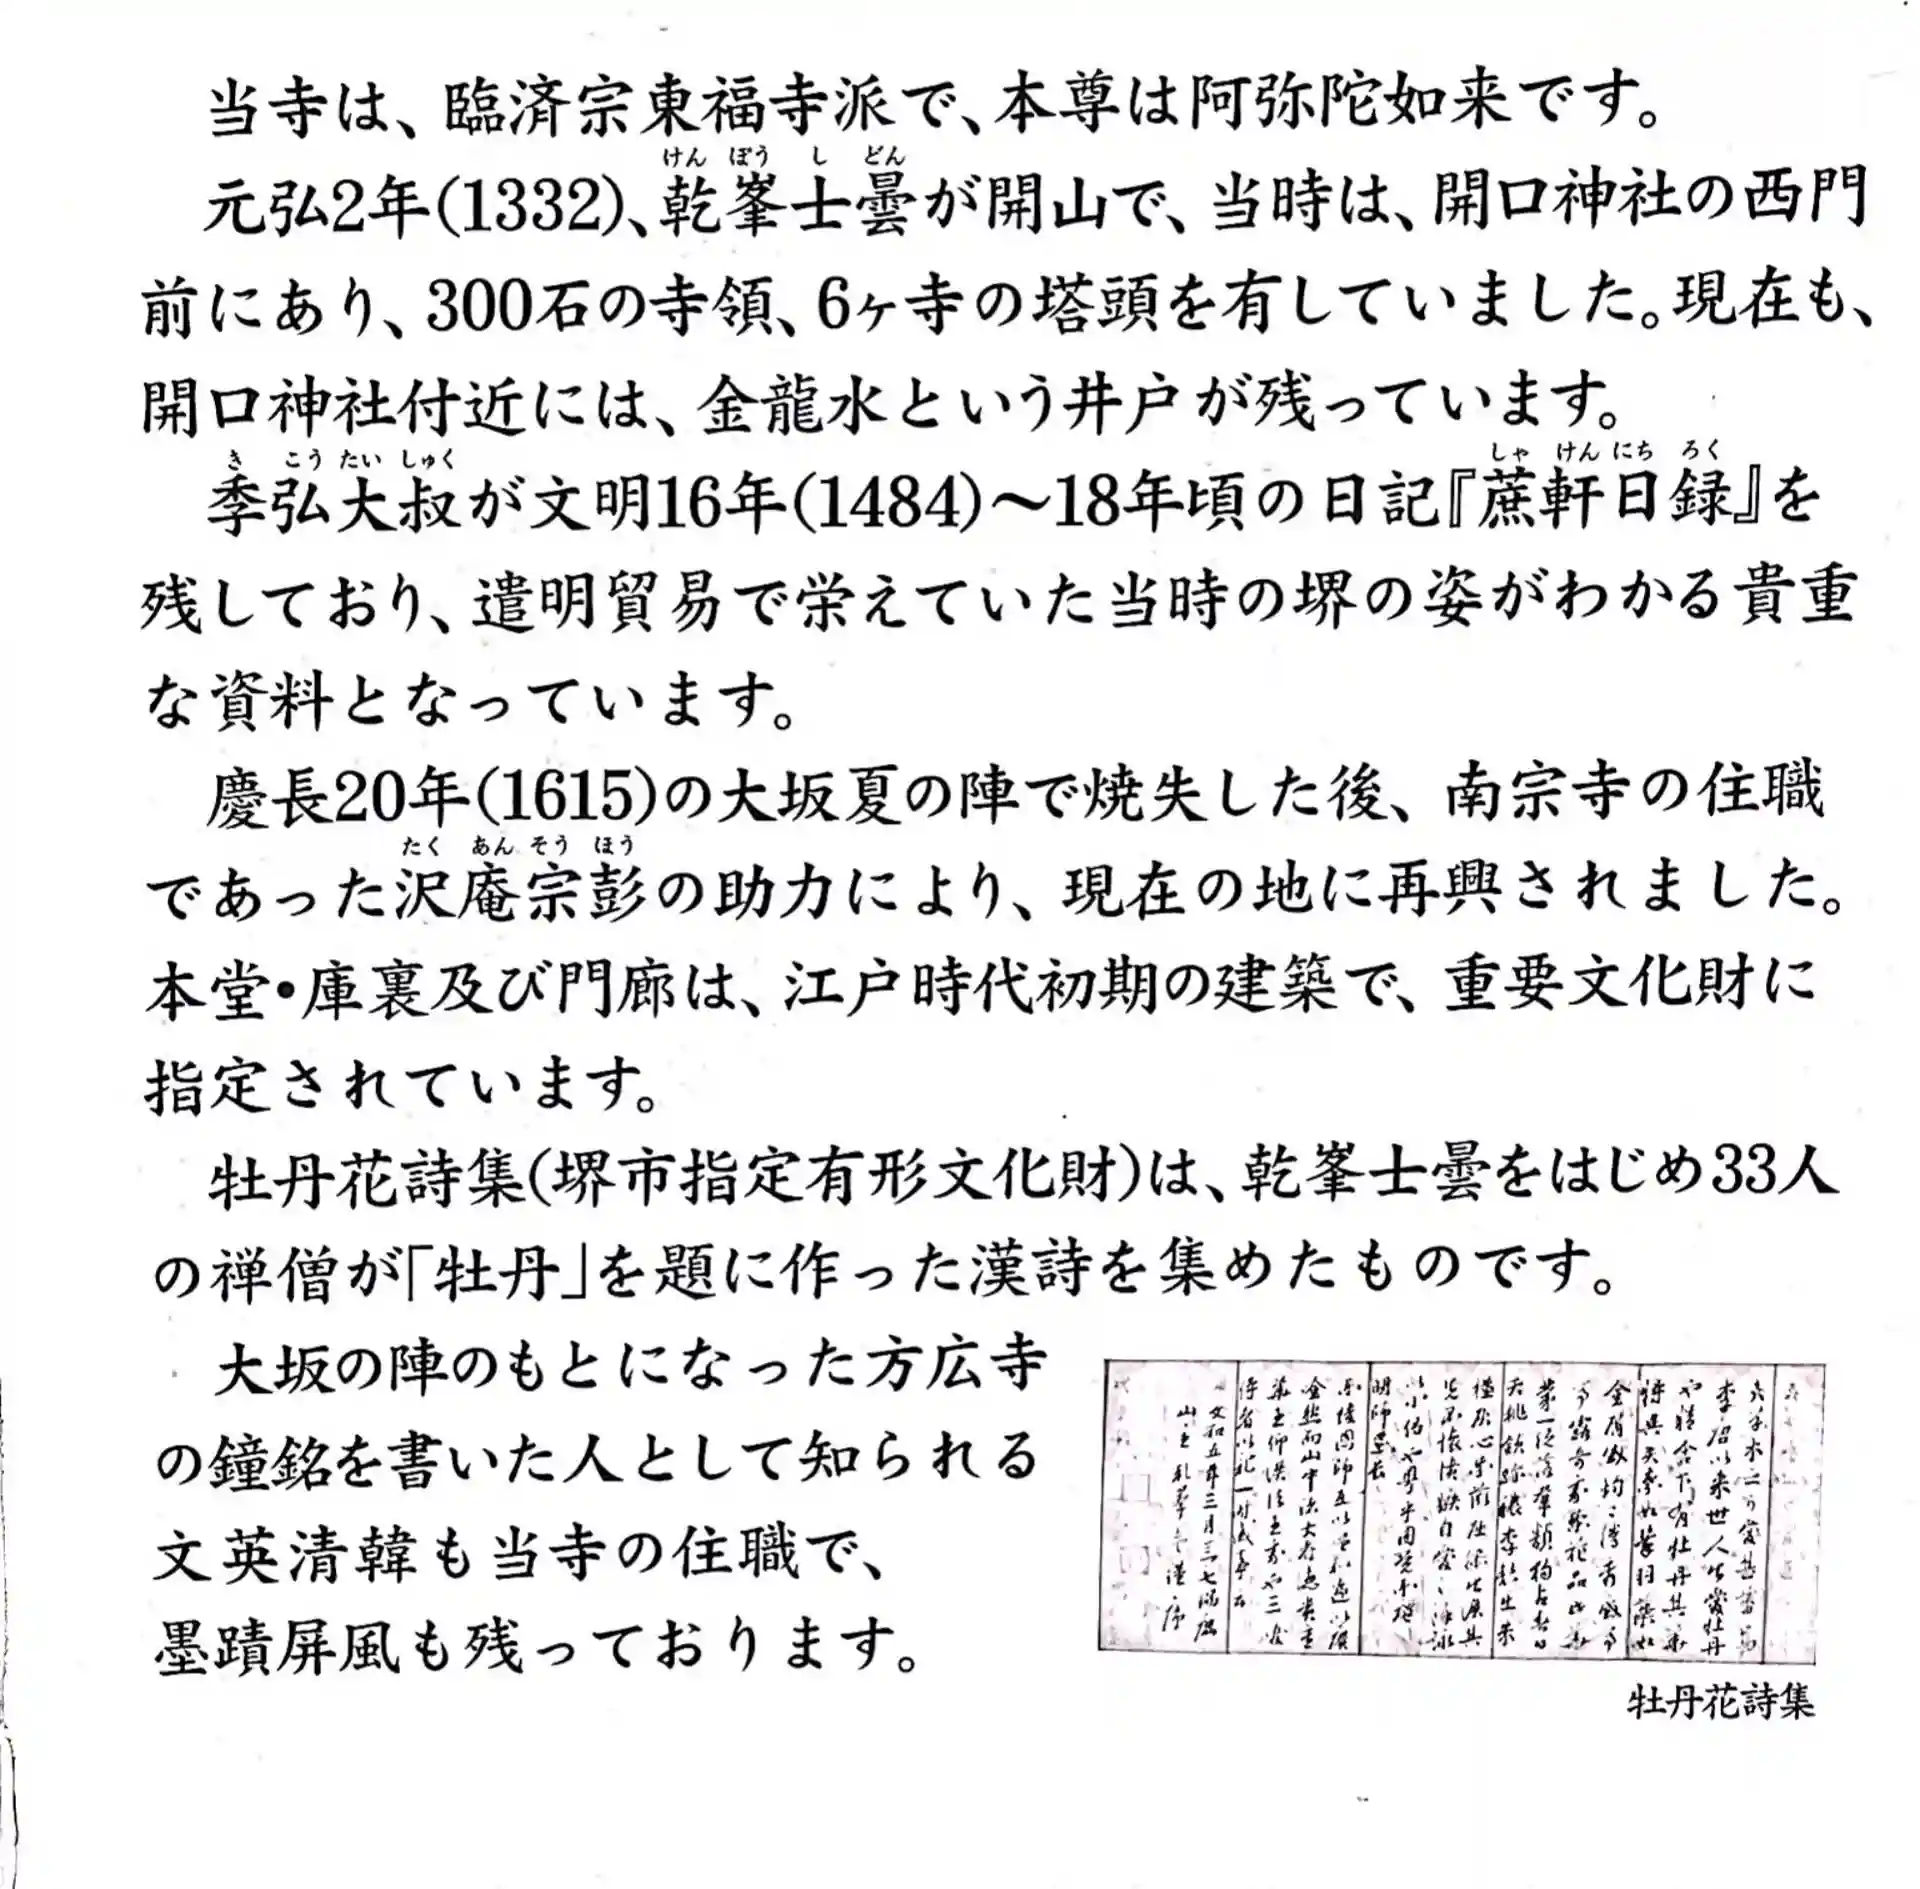 当寺は、臨済宗東福寺派で、本尊は阿弥陀如来です。
けん ぽう し どん
元弘2年(1332)、乾峯士曇が開山で、当時は、開口神社の西門
前にあり、300石の寺領、6ヶ寺の塔頭を有していました。現在も、
開口神社付近には、金龍水という井戸が残っています。
き こう たい しゅく しゃ けん にち ろく
季弘大叔が文明16年(1484)～18年頃の日記『蔗軒日録』を
残しており、遣明貿易で栄えていた当時の堺の姿がわかる貴重
な資料となっています。
慶長20年(1615)の大坂夏の陣で焼失した後、南宗寺の住職
たく あん そう ほう
であった沢庵宗彭の助力により、現在の地に再興されました。
本堂・庫裏及び門廊は、江戸時代初期の建築で、重要文化財に
指定されています。
牡丹花詩集(堺市指定有形文化財)は、乾峯士曇をはじめ33人
の禅僧が「牡丹」を題に作った漢詩を集めたものです。
大坂の陣のもとになった方広寺
の鐘銘を書いた人として知られる
文英清韓も当寺の住職で、
墨蹟屏風も残っております。
牡丹花詩集